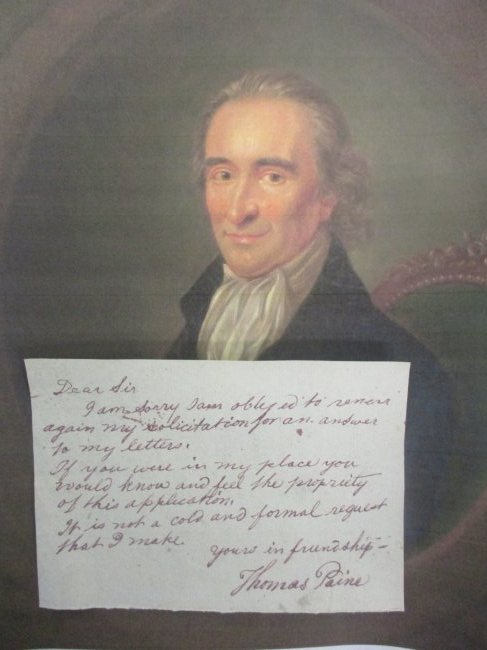 Dear Sir
I am sorry I am obliged to renew
again my solicitation for an answer
to my letters.
If you were in my place you
would know and feel the propriety
of this application.
It is not a cold and formal request
that I make.
yours in friendship –
Thomas Paine